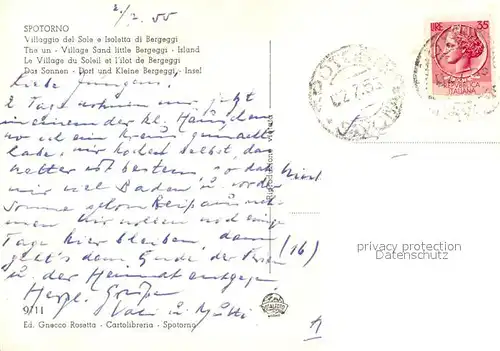 2/7. 55
SPOTORNO
Villaggio del Sole e Isoletta di Bergeggi
The un - Village Sand little Bergeggi - Island
Le Village du Soleil et l'ilot de Bergeggi
Das Sonnen - Dorf und Kleine Bergeggi - Insel
Liebe Jungens!
2 Tage wir jetzt
in einem der kl. Häuschen
wo ich ein Kreuz gemacht
habe, wir kochen selbst, das
Wetter ist bestens, so daß
wir viel Baden u. von der
Sonne schon
wir wollen noch einige
Tage hier bleiben, dann
geht's dem Ende der Ferien
u. der Heimat entgegen
Herzl. Grüße
Vati u. Mutti
(16)
9/11
Ed. Gnecco Rosetta - Cartolibreria - Spotorno
LIRE 35
REPUBBLICA
ITALIANA
privacy protection
Datenschutz